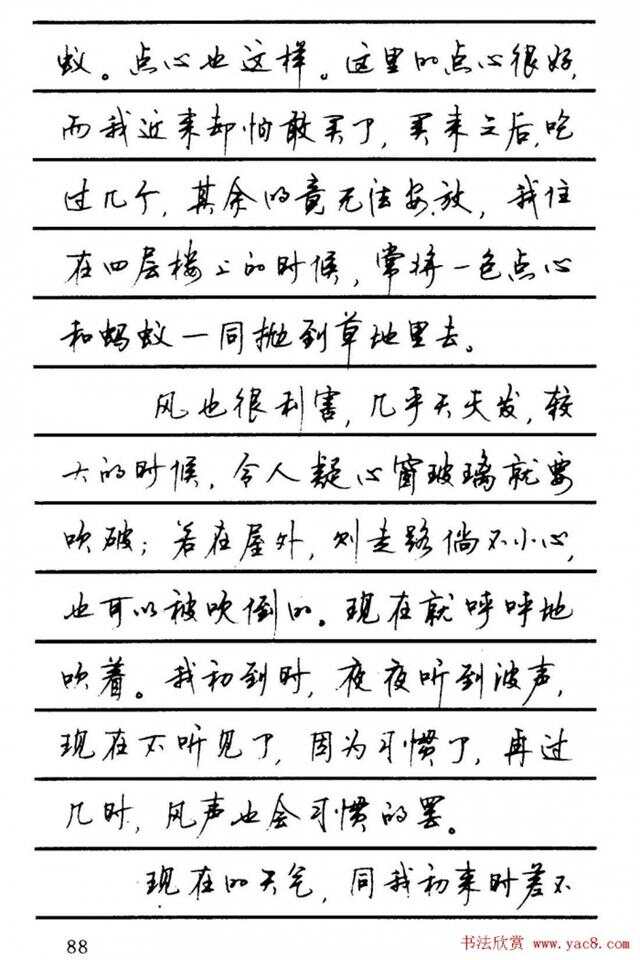 蚁。点心也这样。这里的点心很好,
而我近来却怕敢买了,买来之后,吃
过几个,其余的竟无法安放,我住
在四层楼上的时候,常将一包点心
和蚂蚁一同抛到草地里去。
风也很利害,几乎天天发,较
大的时候,令人疑心窗玻璃就要
吹破;若在屋外,则走路倘不小心,
也可以被吹倒的。现在就呼呼地
吹着。我初到时,夜夜听到波声,
现在不听见了,因为习惯了,再过
几时,风声也会习惯的罢。
现在的天气,同我初来时差不
88
书法欣赏 www.yac8.com